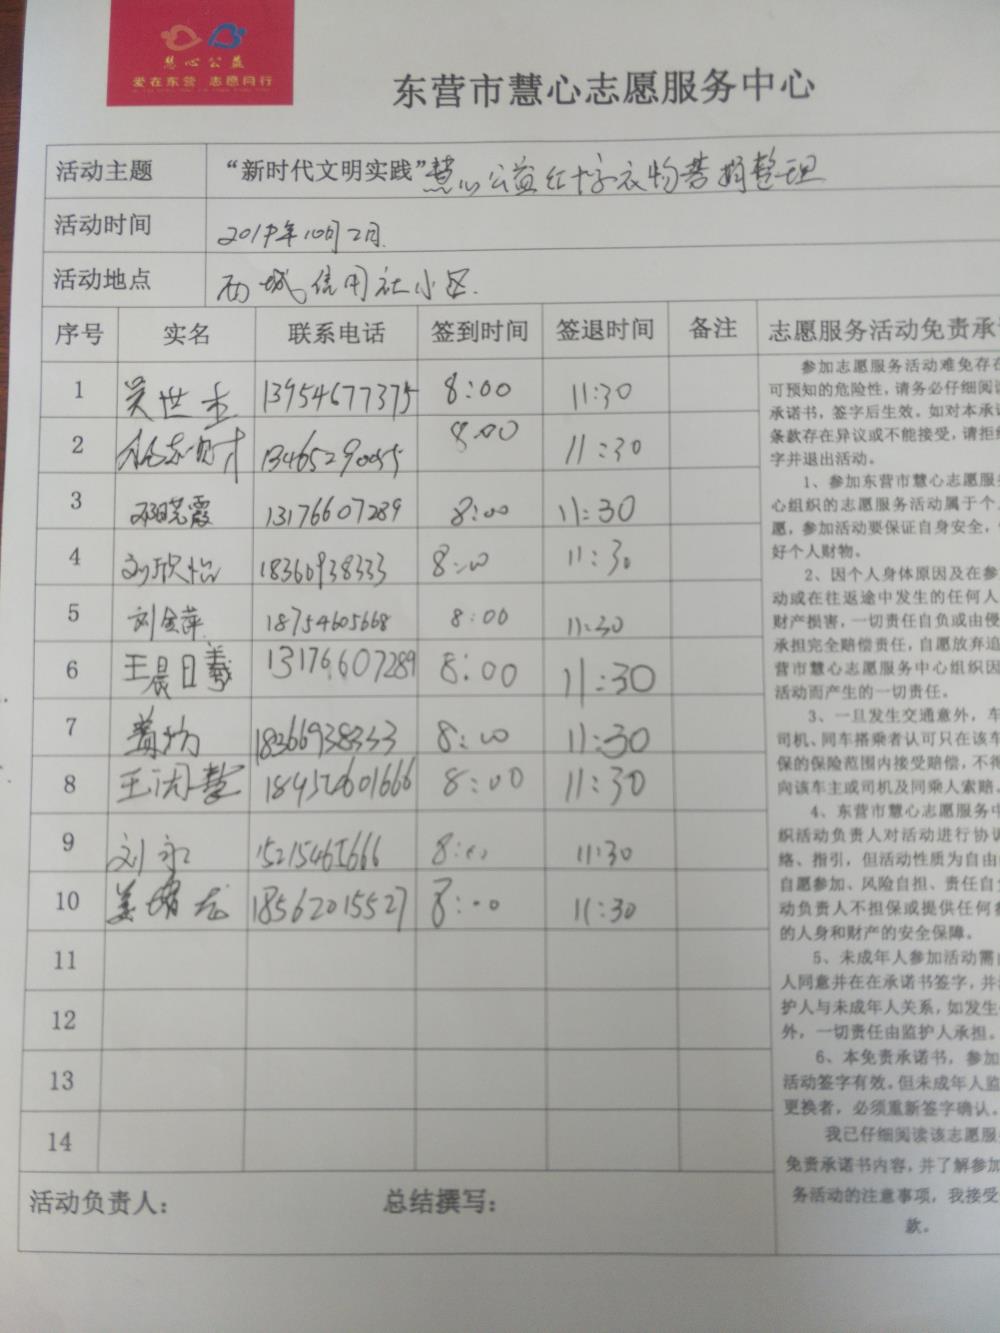 慧心公益
爱在东营 志愿同行
东营市慧心志愿服务中心
活动主题 “新时代文明实践”慧心公益红十字衣物募捐整理
活动时间 2019年10月2日
活动地点 西城信用社小区
序号 实名 联系电话 签到时间 签退时间 备注
1 吴世杰 13954677375 8:00 11:30
2 8:00 11:30
3 邓晓霞 13176607289 8:00 11:30
4 刘欣怡 18360938333 8:00 11:30
5 刘金萍 18754605668 8:00 11:30
6 王晨曦 13176607289 8:00 11:30
7 18366938333 8:00 11:30
8 王闰慧 8:00 11:30
9 刘永 8:00 11:30
10 姜 18562015527 8:00 11:30
11
12
13
14
活动负责人: 总结撰写:
志愿服务活动免责承
参加志愿服务活动难免存在
可预知的危险性,请务必仔细阅读
承诺书,签字后生效。如对本承诺
条款存在异议或不能接受,请拒绝
字并退出活动。
1、参加东营市慧心志愿服务
心组织的志愿服务活动属于个
愿,参加活动要保证自身安全,
好个人财物。
2、因个人身体原因及在参
动或在往返途中发生的任何人
财产损害,一切责任自负或由侵
承担完全赔偿责任,自愿放弃追
营市慧心志愿服务中心组织因
活动而产生的一切责任。
3、一旦发生交通意外,车
司机、同车搭乘者认可只在该车
保的保险范围内接受赔偿,不得
向该车主或司机及同乘人索赔。
4、东营市慧心志愿服务中
织活动负责人对活动进行协调
络、指引,但活动性质为自由
自愿参加、风险自担、责任自负
动负责人不担保或提供任何参
的人身和财产的安全保障。
5、未成年人参加活动需
人同意并在在承诺书签字,并
护人与未成年人关系,如发生
外,一切责任由监护人承担。
6、本免责承诺书,参加
活动签字有效。但未成年人监
更换者,必须重新签字确认。
我已仔细阅读该志愿服
免责承诺书内容,并了解参加
务活动的注意事项,我接受
款。